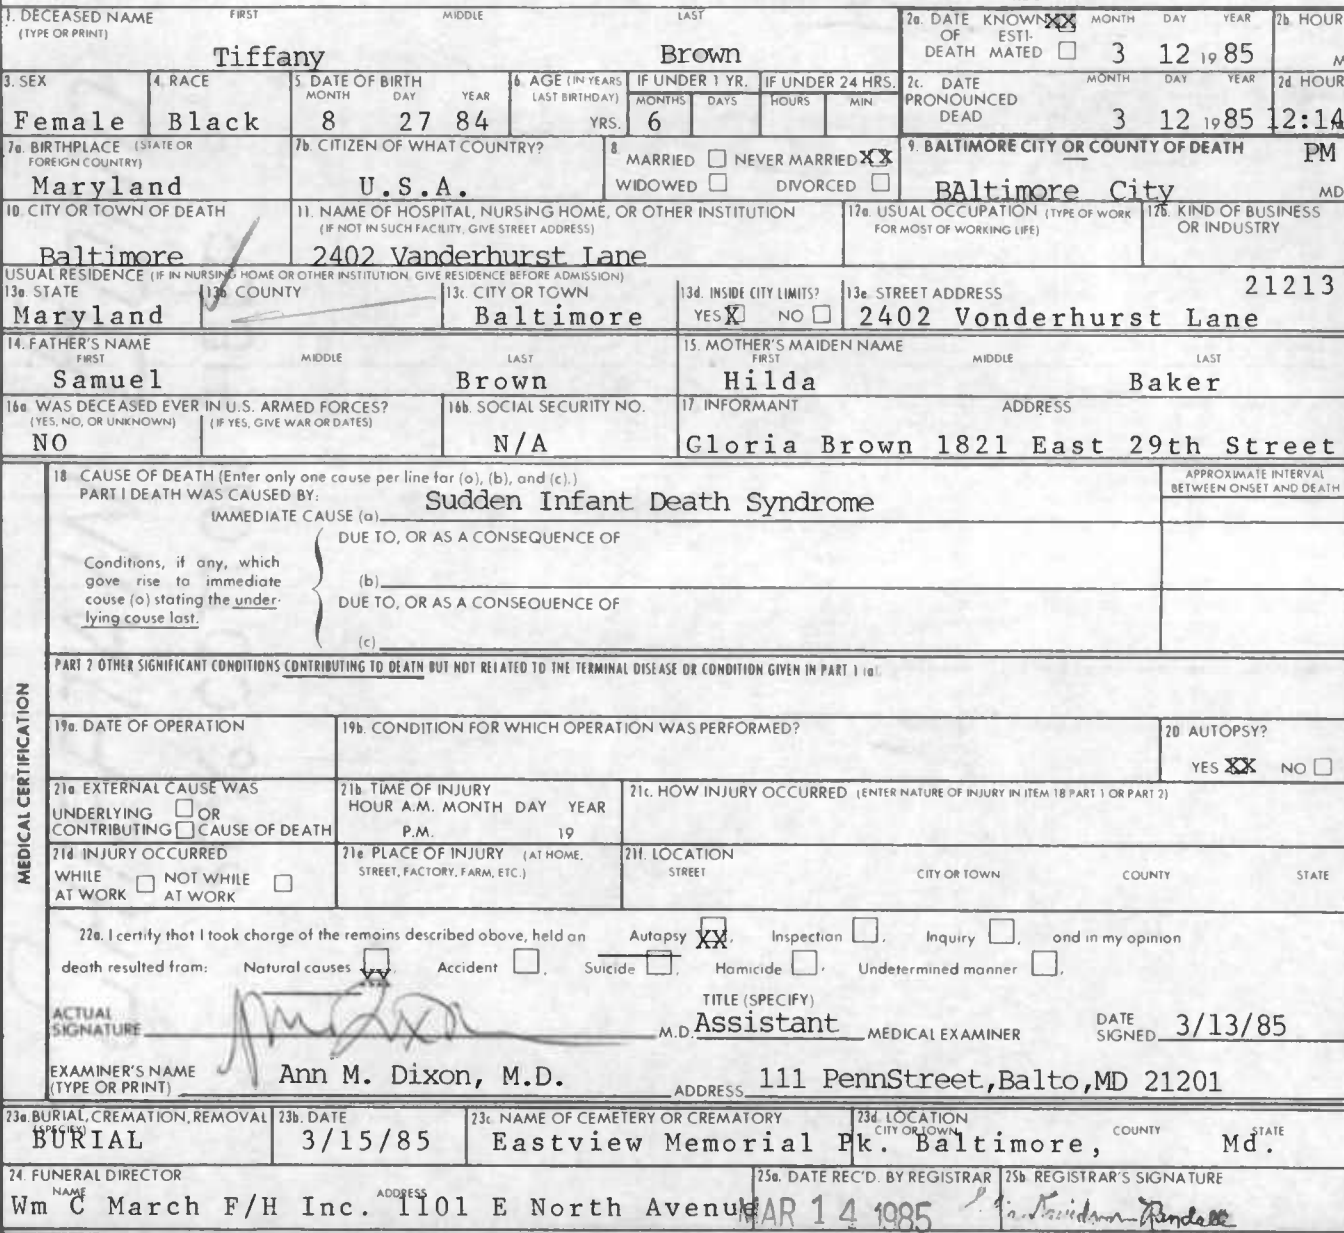 1. DECEASED NAME (TYPE OR PRINT) FIRST MIDDLE LAST
Tiffany Brown
2a. DATE OF DEATH KNOWN XX ESTIMATED MONTH DAY YEAR
3 12 1985
2b. HOUR M
3. SEX
Female
4. RACE
Black
5. DATE OF BIRTH MONTH DAY YEAR
8 27 84
6. AGE (IN YEARS LAST BIRTHDAY) YRS.
IF UNDER 1 YR. MONTHS DAYS
6
IF UNDER 24 HRS. HOURS MIN
2c. DATE PRONOUNCED DEAD MONTH DAY YEAR
3 12 1985
2d HOUR
12:14 PM
7a. BIRTHPLACE (STATE OR FOREIGN COUNTRY)
Maryland
7b. CITIZEN OF WHAT COUNTRY?
U.S.A.
8. MARRIED NEVER MARRIED XX
WIDOWED DIVORCED
9. BALTIMORE CITY OR COUNTY OF DEATH
BAltimore City MD
10. CITY OR TOWN OF DEATH
Baltimore
11. NAME OF HOSPITAL, NURSING HOME, OR OTHER INSTITUTION
(IF NOT IN SUCH FACILITY, GIVE STREET ADDRESS)
2402 Vanderhurst Lane
12a. USUAL OCCUPATION (TYPE OF WORK FOR MOST OF WORKING LIFE)
12b. KIND OF BUSINESS OR INDUSTRY
USUAL RESIDENCE (IF IN NURSING HOME OR OTHER INSTITUTION, GIVE RESIDENCE BEFORE ADMISSION)
13a. STATE
Maryland
13b COUNTY
13c. CITY OR TOWN
Baltimore
13d. INSIDE CITY LIMITS?
YES X NO
13e. STREET ADDRESS 21213
2402 Vonderhurst Lane
14. FATHER'S NAME FIRST MIDDLE LAST
Samuel Brown
15. MOTHER'S MAIDEN NAME FIRST MIDDLE LAST
Hilda Baker
16a WAS DECEASED EVER IN U.S. ARMED FORCES?
(YES, NO, OR UNKNOWN) (IF YES, GIVE WAR OR DATES)
NO
16b. SOCIAL SECURITY NO.
N/A
17 INFORMANT ADDRESS
Gloria Brown 1821 East 29th Street
MEDICAL CERTIFICATION
18 CAUSE OF DEATH (Enter only one cause per line for (a), (b), and (c).)
PART I DEATH WAS CAUSED BY:
IMMEDIATE CAUSE (a) Sudden Infant Death Syndrome
APPROXIMATE INTERVAL BETWEEN ONSET AND DEATH
DUE TO, OR AS A CONSEQUENCE OF
Conditions, if any, which
gave rise to immediate
cause (a) stating the under-
lying cause last.
(b)
DUE TO, OR AS A CONSEQUENCE OF
(c)
PART 2 OTHER SIGNIFICANT CONDITIONS CONTRIBUTING TO DEATH BUT NOT RELATED TO THE TERMINAL DISEASE OR CONDITION GIVEN IN PART 1 (a).
19a. DATE OF OPERATION
19b. CONDITION FOR WHICH OPERATION WAS PERFORMED?
20 AUTOPSY?
YES XX NO
21a EXTERNAL CAUSE WAS
UNDERLYING OR
CONTRIBUTING CAUSE OF DEATH
21b TIME OF INJURY
HOUR A.M. MONTH DAY YEAR
P.M. 19
21c. HOW INJURY OCCURRED (ENTER NATURE OF INJURY IN ITEM 18 PART 1 OR PART 2)
21d INJURY OCCURRED
WHILE AT WORK NOT WHILE AT WORK
21e PLACE OF INJURY (AT HOME, STREET, FACTORY, FARM, ETC.)
21f. LOCATION
STREET CITY OR TOWN COUNTY STATE
22a. I certify that I took charge of the remains described above, held an Autopsy XX, Inspection , Inquiry , and in my opinion
death resulted from: Natural causes XX, Accident , Suicide , Homicide , Undetermined manner .
ACTUAL SIGNATURE Ann M Dixon M.D.
TITLE (SPECIFY)
Assistant MEDICAL EXAMINER
DATE SIGNED 3/13/85
EXAMINER'S NAME (TYPE OR PRINT) Ann M. Dixon, M.D.
ADDRESS 111 PennStreet,Balto,MD 21201
23a. BURIAL, CREMATION, REMOVAL (SPECIFY)
BURIAL
23b. DATE
3/15/85
23c. NAME OF CEMETERY OR CREMATORY
Eastview Memorial Pk.
23d. LOCATION CITY OR TOWN COUNTY STATE
Baltimore, Md.
24. FUNERAL DIRECTOR
NAME ADDRESS
Wm C March F/H Inc. 1101 E North Avenue
25a. DATE REC'D. BY REGISTRAR
MAR 14 1985
25b. REGISTRAR'S SIGNATURE
Davidson Randall